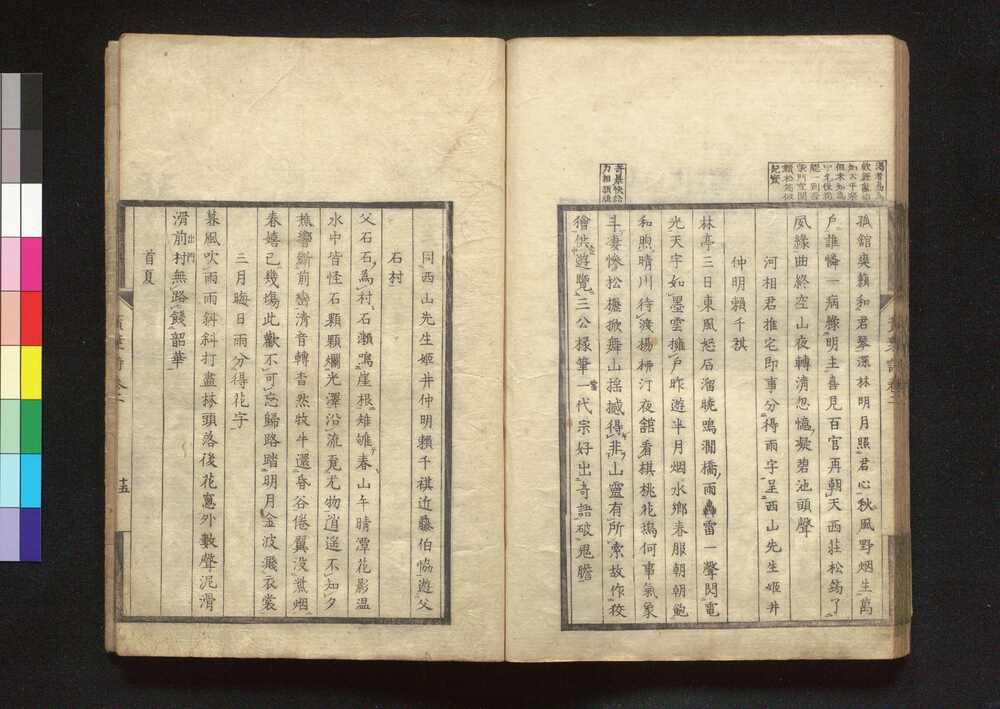 孤館奥籟和君琴深林明月照君心秋風野烟生萬
戶誰憐一病緣明主喜見百官再朝天西莊松筠了
夙緣曲終空山夜轉淸忽憶凝碧池頭聲
河相君推宅即事分得雨字呈西山先生姬井
仲明賴千祺
林亭三日東風怒石溜曉鳴澗橋雨轟雷一聲閃電
光天字如墨雲擁戶昨遊半月烟水鄉春服朝朝飽
和煦晴川待渡揚柳汀夜館看棋桃花塢何事氣象
斗妻慘松櫪掀舞山搖撼得非山靈有所索故作狡
獪供遊覽三公椽筆一代宗好出奇語破鬼膽
同西山先生姬井仲明賴千祺近藤伯恊遊父
石村
父石石爲村石瀨鳴崖根雉雊春山午晴潭花影溫
水中皆怪石顆顆爛光澤沿流覓尤物逍遥不知夕
樵響斷前巒淸音轉杳然牧牛還昏谷倦翼沒煮烟
春嬉已幾塲此歡不可忘歸路踏明月金波濺衣裳
三月晦日雨分得花字
暮風吹雨雨斜斜打盡林頭落後花窻外數聲泥滑
滑前村無路餞韶華
首夏
十五